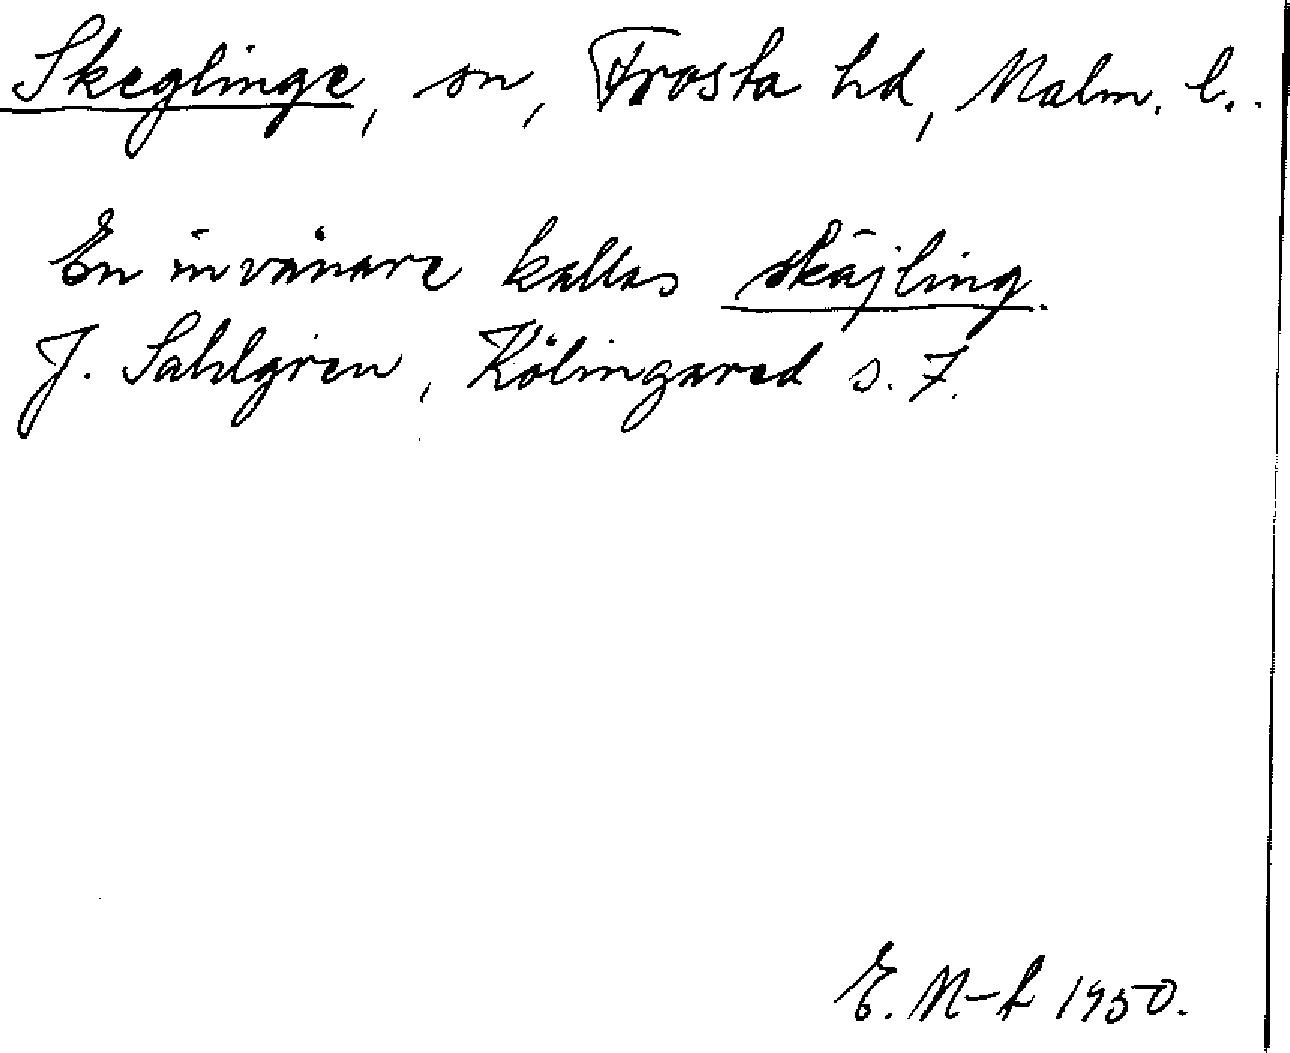 Skeglinge, sn, Frosta hd, Malm. l..
En invånare kallas skäjling.
J. Sahlgren, Kölingared s. 7.
E. N-h 1950.